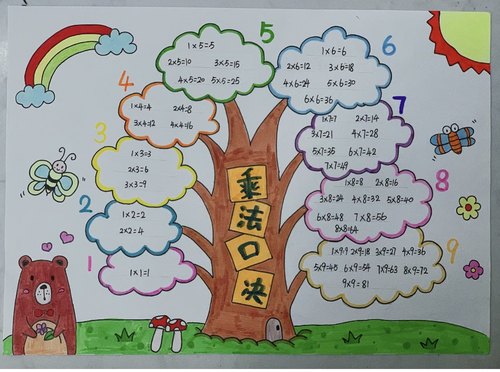 乘
法
口
决
1
1×1=1
2
1×2=2
2×2=4
3
1×3=3
2×3=6
3×3=9
4
1×4=4 2×4=8
3×4=12 4×4=16
5
1×5=5
2×5=10 3×5=15
4×5=20 5×5=25
6
1×6=6
2×6=12 3×6=18
4×6=24 5×6=30
6×6=36
7
1×7=7 2×7=14
3×7=21 4×7=28
5×7=35 6×7=42
7×7=49
8
1×8=8 2×8=16
3×8=24 4×8=32 5×8=40
6×8=48 7×8=56
8×8=64
9
1×9=9 2×9=18 3×9=27 4×9=36
5×9=45 6×9=54 7×9=63 8×9=72
9×9=81